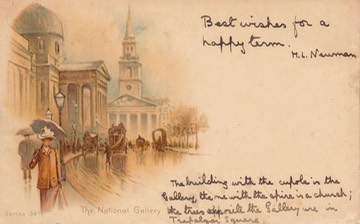 Best wishes for a
happy term.
M.L. Newman
Series 34
The National Gallery
The building with the cupola is the
Gallery, the one with the spire is a church;
the trees opposite the Gallery are in
Trafalgar Square.